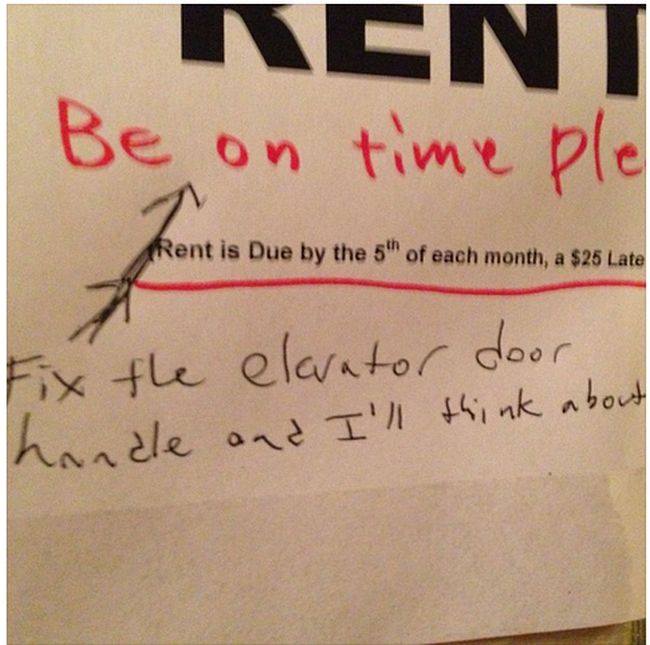 RENT
Be on time ple
Rent is Due by the 5th of each month, a $25 Late
Fix the elevator door
handle and I'll think about